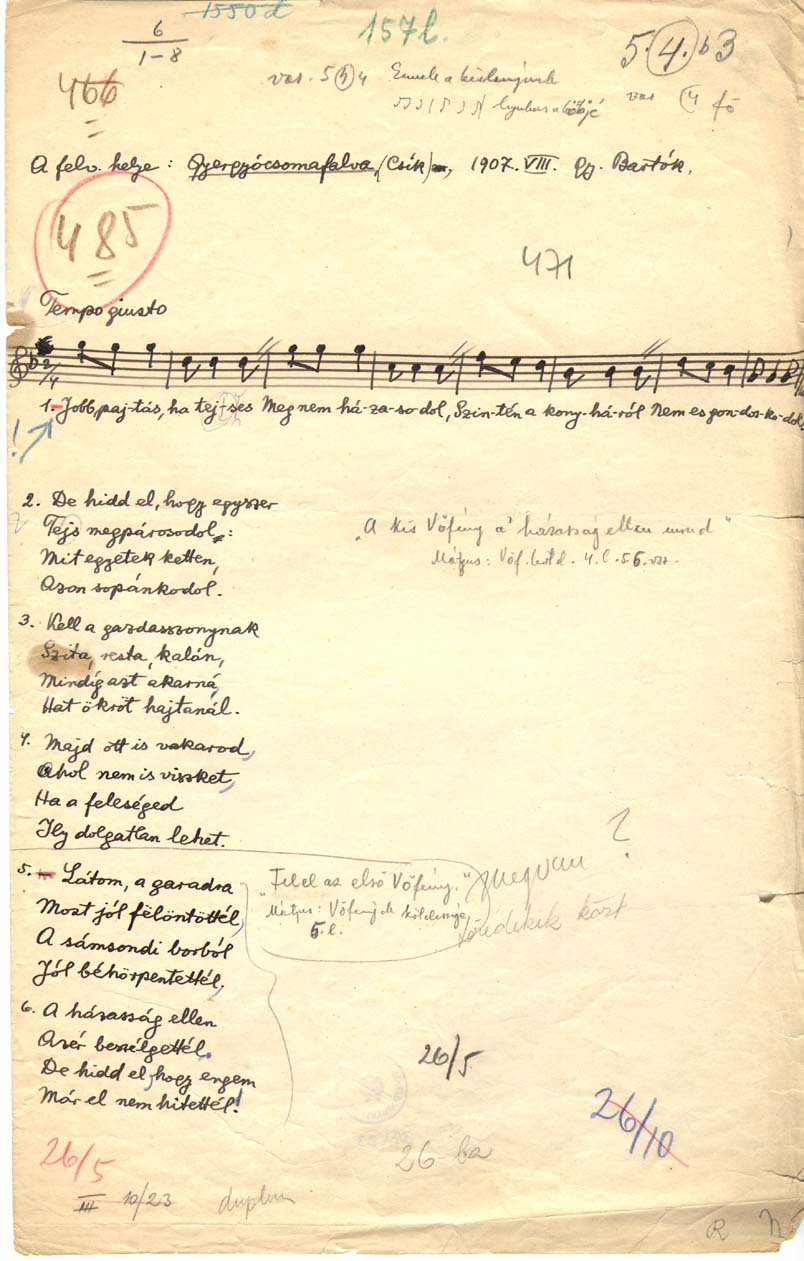 1550d
6
1-8
157l.
5.4.b3
466
var. 5 4 4
var 4 fő
A felv. helye: Gyergyócsomafalva, (Csík), 1907. VIII. Gy. Bartók.
485
471
Tempo giusto
2/4
1. Jobb, paj-tás, ha tej-ses Meg nem há-za-so-dol, Szin-tén a kony-há-ról Nem es gon-dos-ko-dol.
!
2. De hidd el, hogy egyszer
Tejs megpárosodol:
Mit egyetek ketten,
Azon sopánkodol.
„A kis Vőfény a' házasság ellen mind"
Mátyus: Vőf. 4. l. 5 6. vsz.
3. Kell a gazdasszonynak
Szita, rosta, kalán,
Mindíg azt akarná,
Hat ökröt hajtanál.
4. Majd ott is vakarod,
Ahol nem is viszket,
Ha a feleséged
Ily dolgatlan lehet.
?
5. Látom, a garadra
Most jól fëlöntöttél,
A sámsondi borból
Jól béhörpentettél,
„Felel az első Vőfény."
Mátyus: Vőfények kötelessége,
5. l.
megvan
közt
6. A házasság ellen
Azér beszélgettél.
De hidd el, hogy engem
Már el nem hitettél!
26/5
26/10
26-ba
26/5
III 10/23 duplum
R